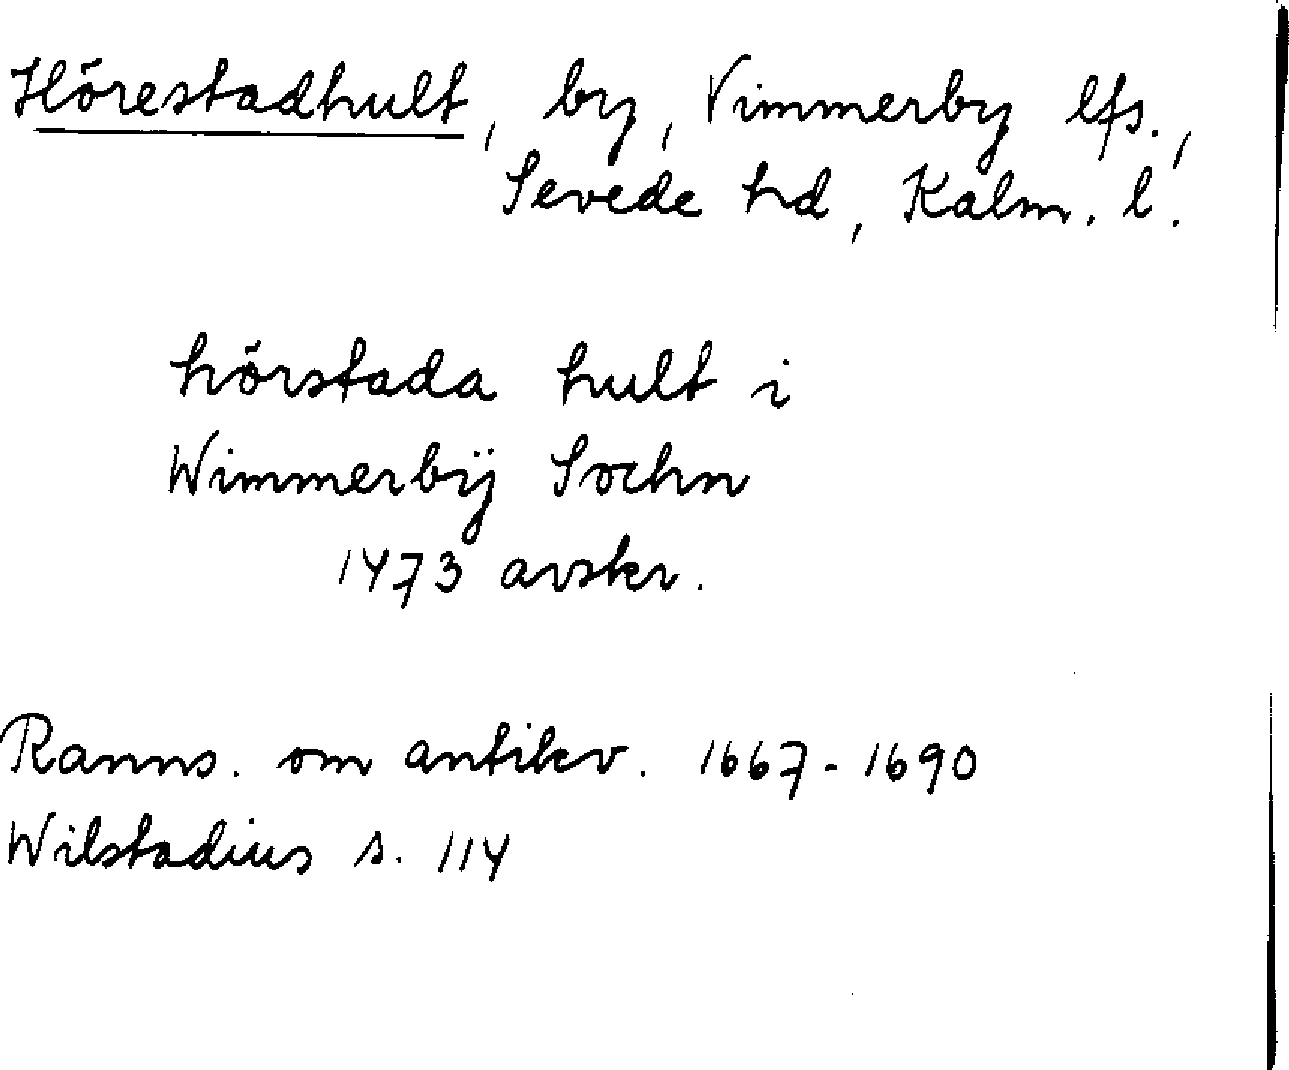 Hörestadhult, by, Vimmerby lfs.,
Sevede hd, Kalm. l.
hörstada hult i
Wimmerbÿ Sochn
1473 avskr.
Ranns. om antikv. 1667-1690
Wilstadius s. 114